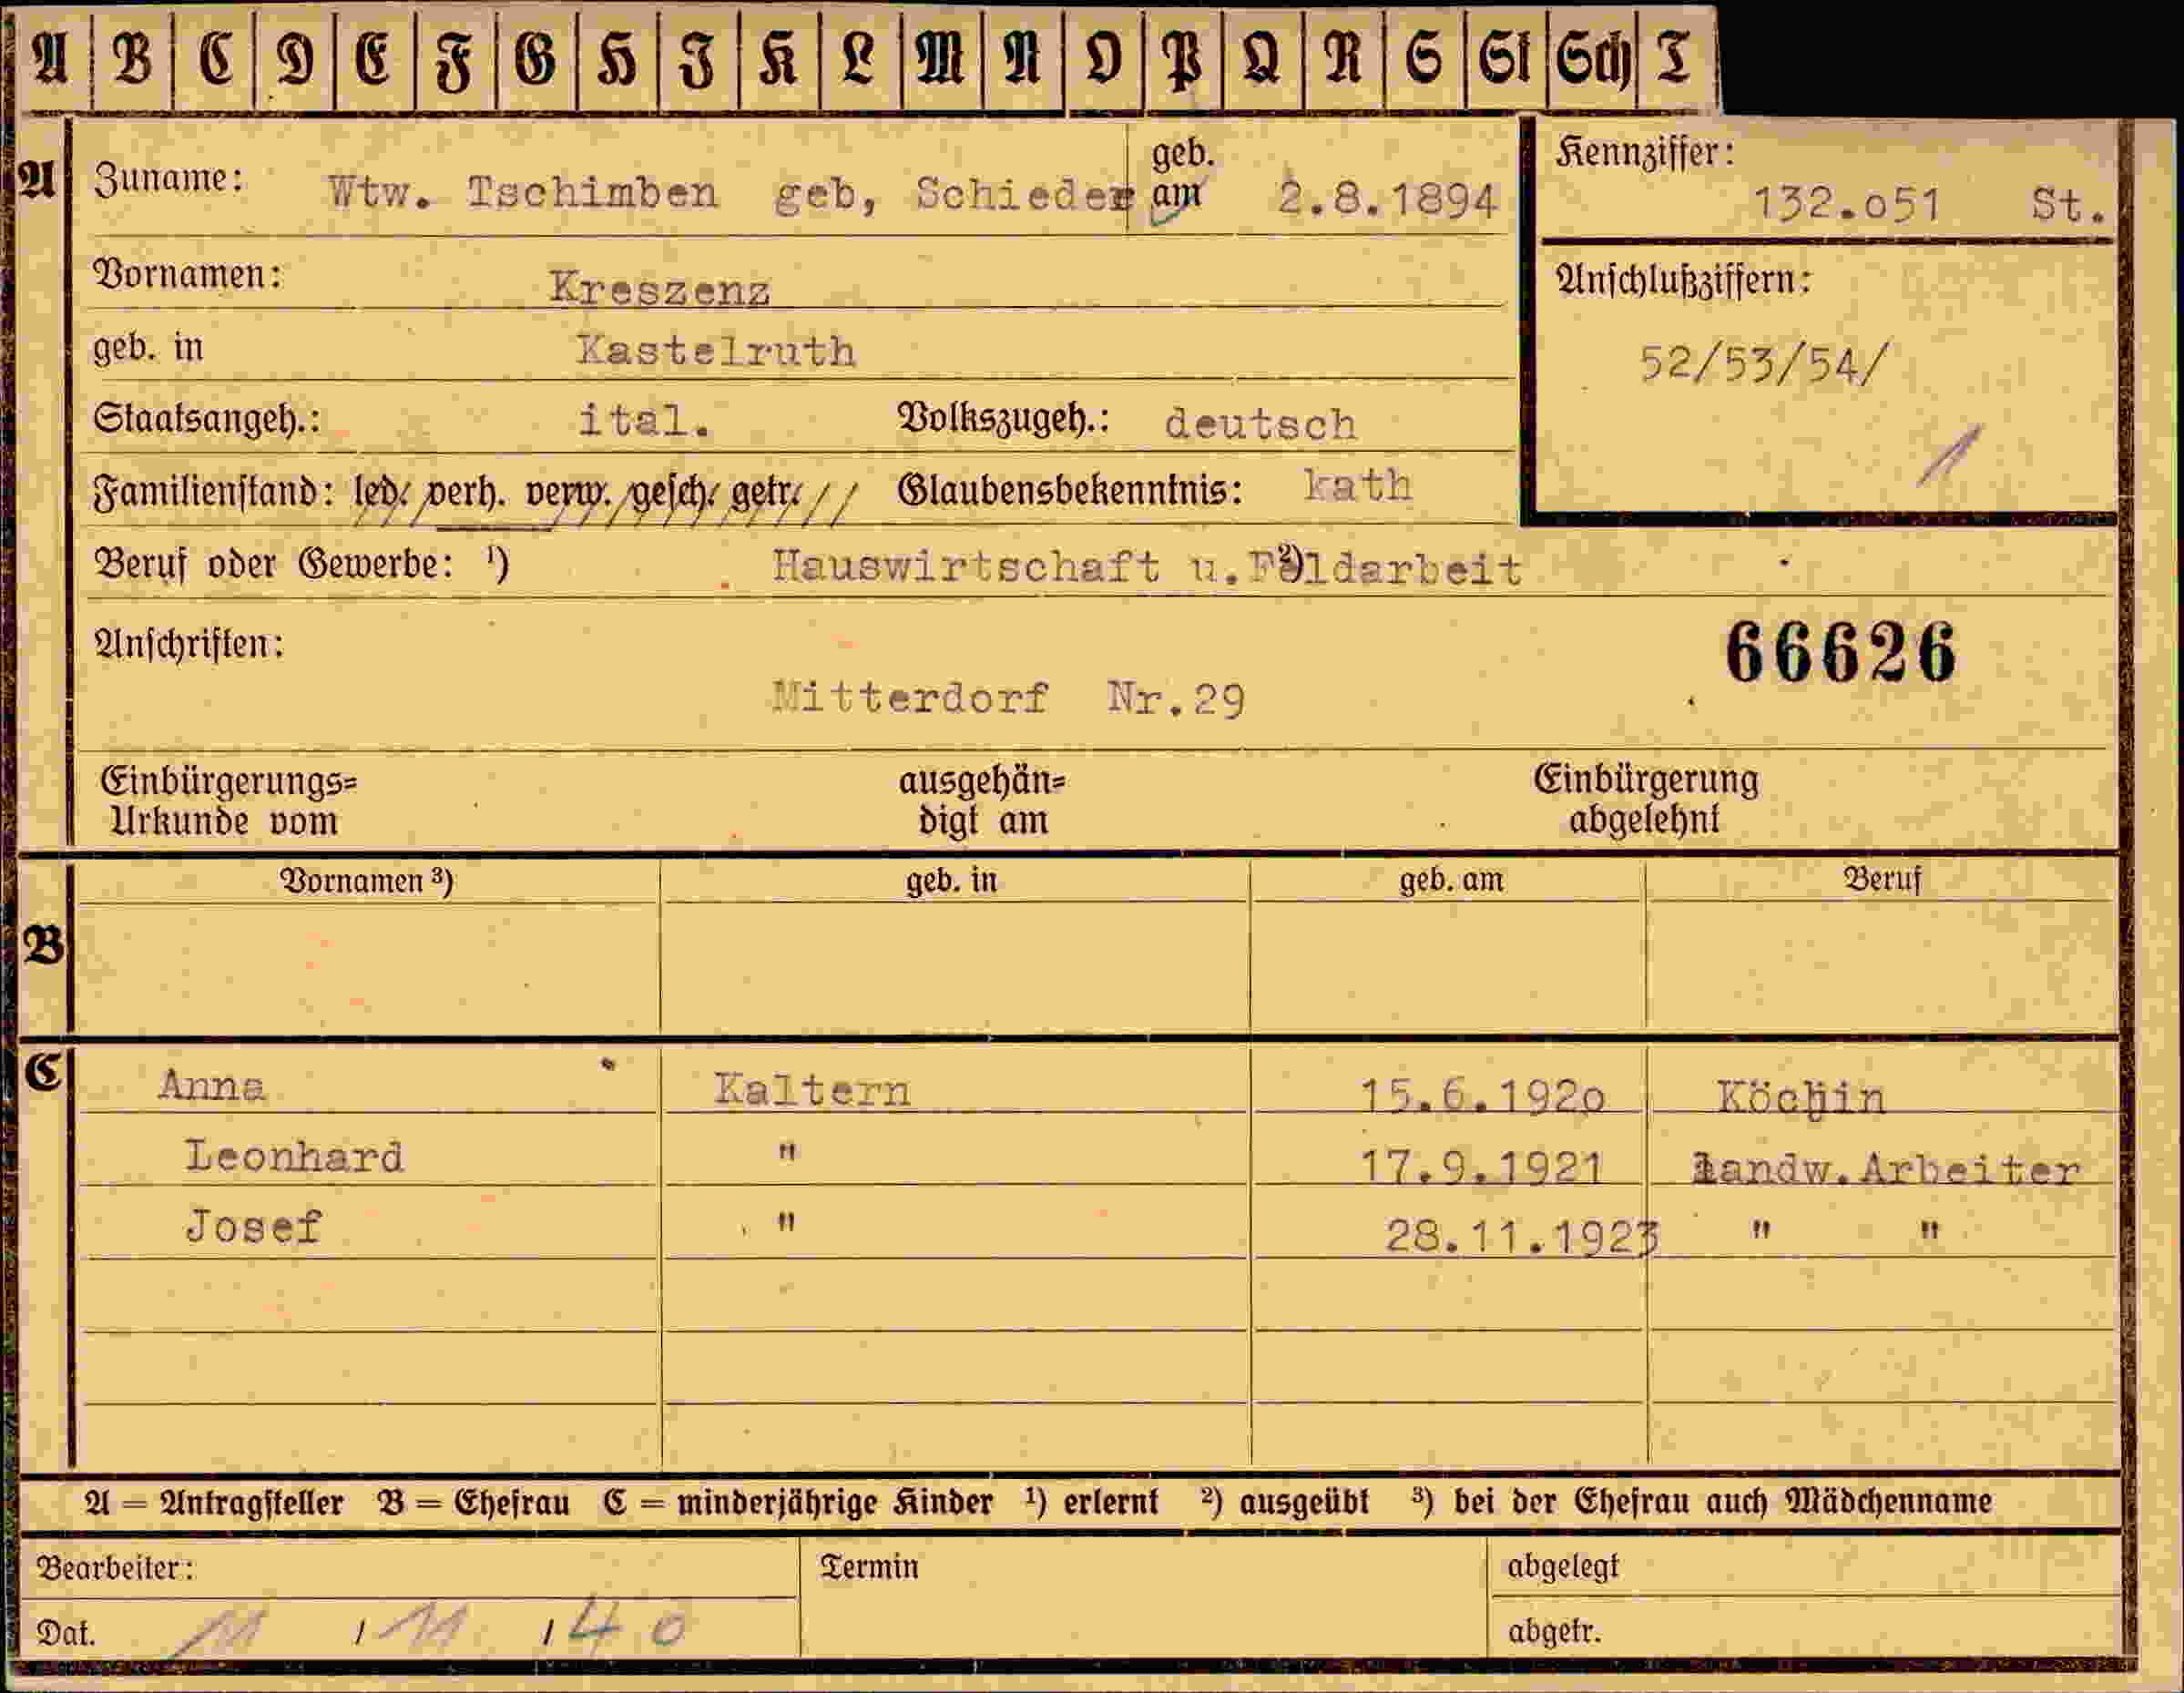 A B C D E F G H I K L M N O P Q R S St Sch T
A
Zuname: Wtw. Tschimben geb, Schieder geb. am 2.8.1894
Kennziffer: 132.o51 St.
Vornamen: Kreszenz
Anschlußziffern:
52/53/54/
1
geb. in Kastelruth
Staatsangeh.: ital. Volkszugeh.: deutsch
Familienstand: led. verh. verw. gesch. getr. Glaubensbekenntnis: kath
Beruf oder Gewerbe: ¹) Hauswirtschaft u.Feldarbeit ²)
Anschriften:
66626
Mitterdorf Nr.29
Einbürgerungs=
Urkunde vom
ausgehän=
digt am
Einbürgerung
abgelehnt
B
Vornamen ³) geb. in geb. am Beruf
C
Anna Kaltern 15.6.192o Köchin
Leonhard " 17.9.1921 Landw.Arbeiter
Josef " 28.11.1923 " "
A = Antragsteller B = Ehefrau C = minderjährige Kinder ¹) erlernt ²) ausgeübt ³) bei der Ehefrau auch Mädchenname
Bearbeiter: Termin abgelegt
Dat. 11 / 11 / 40 abgetr.